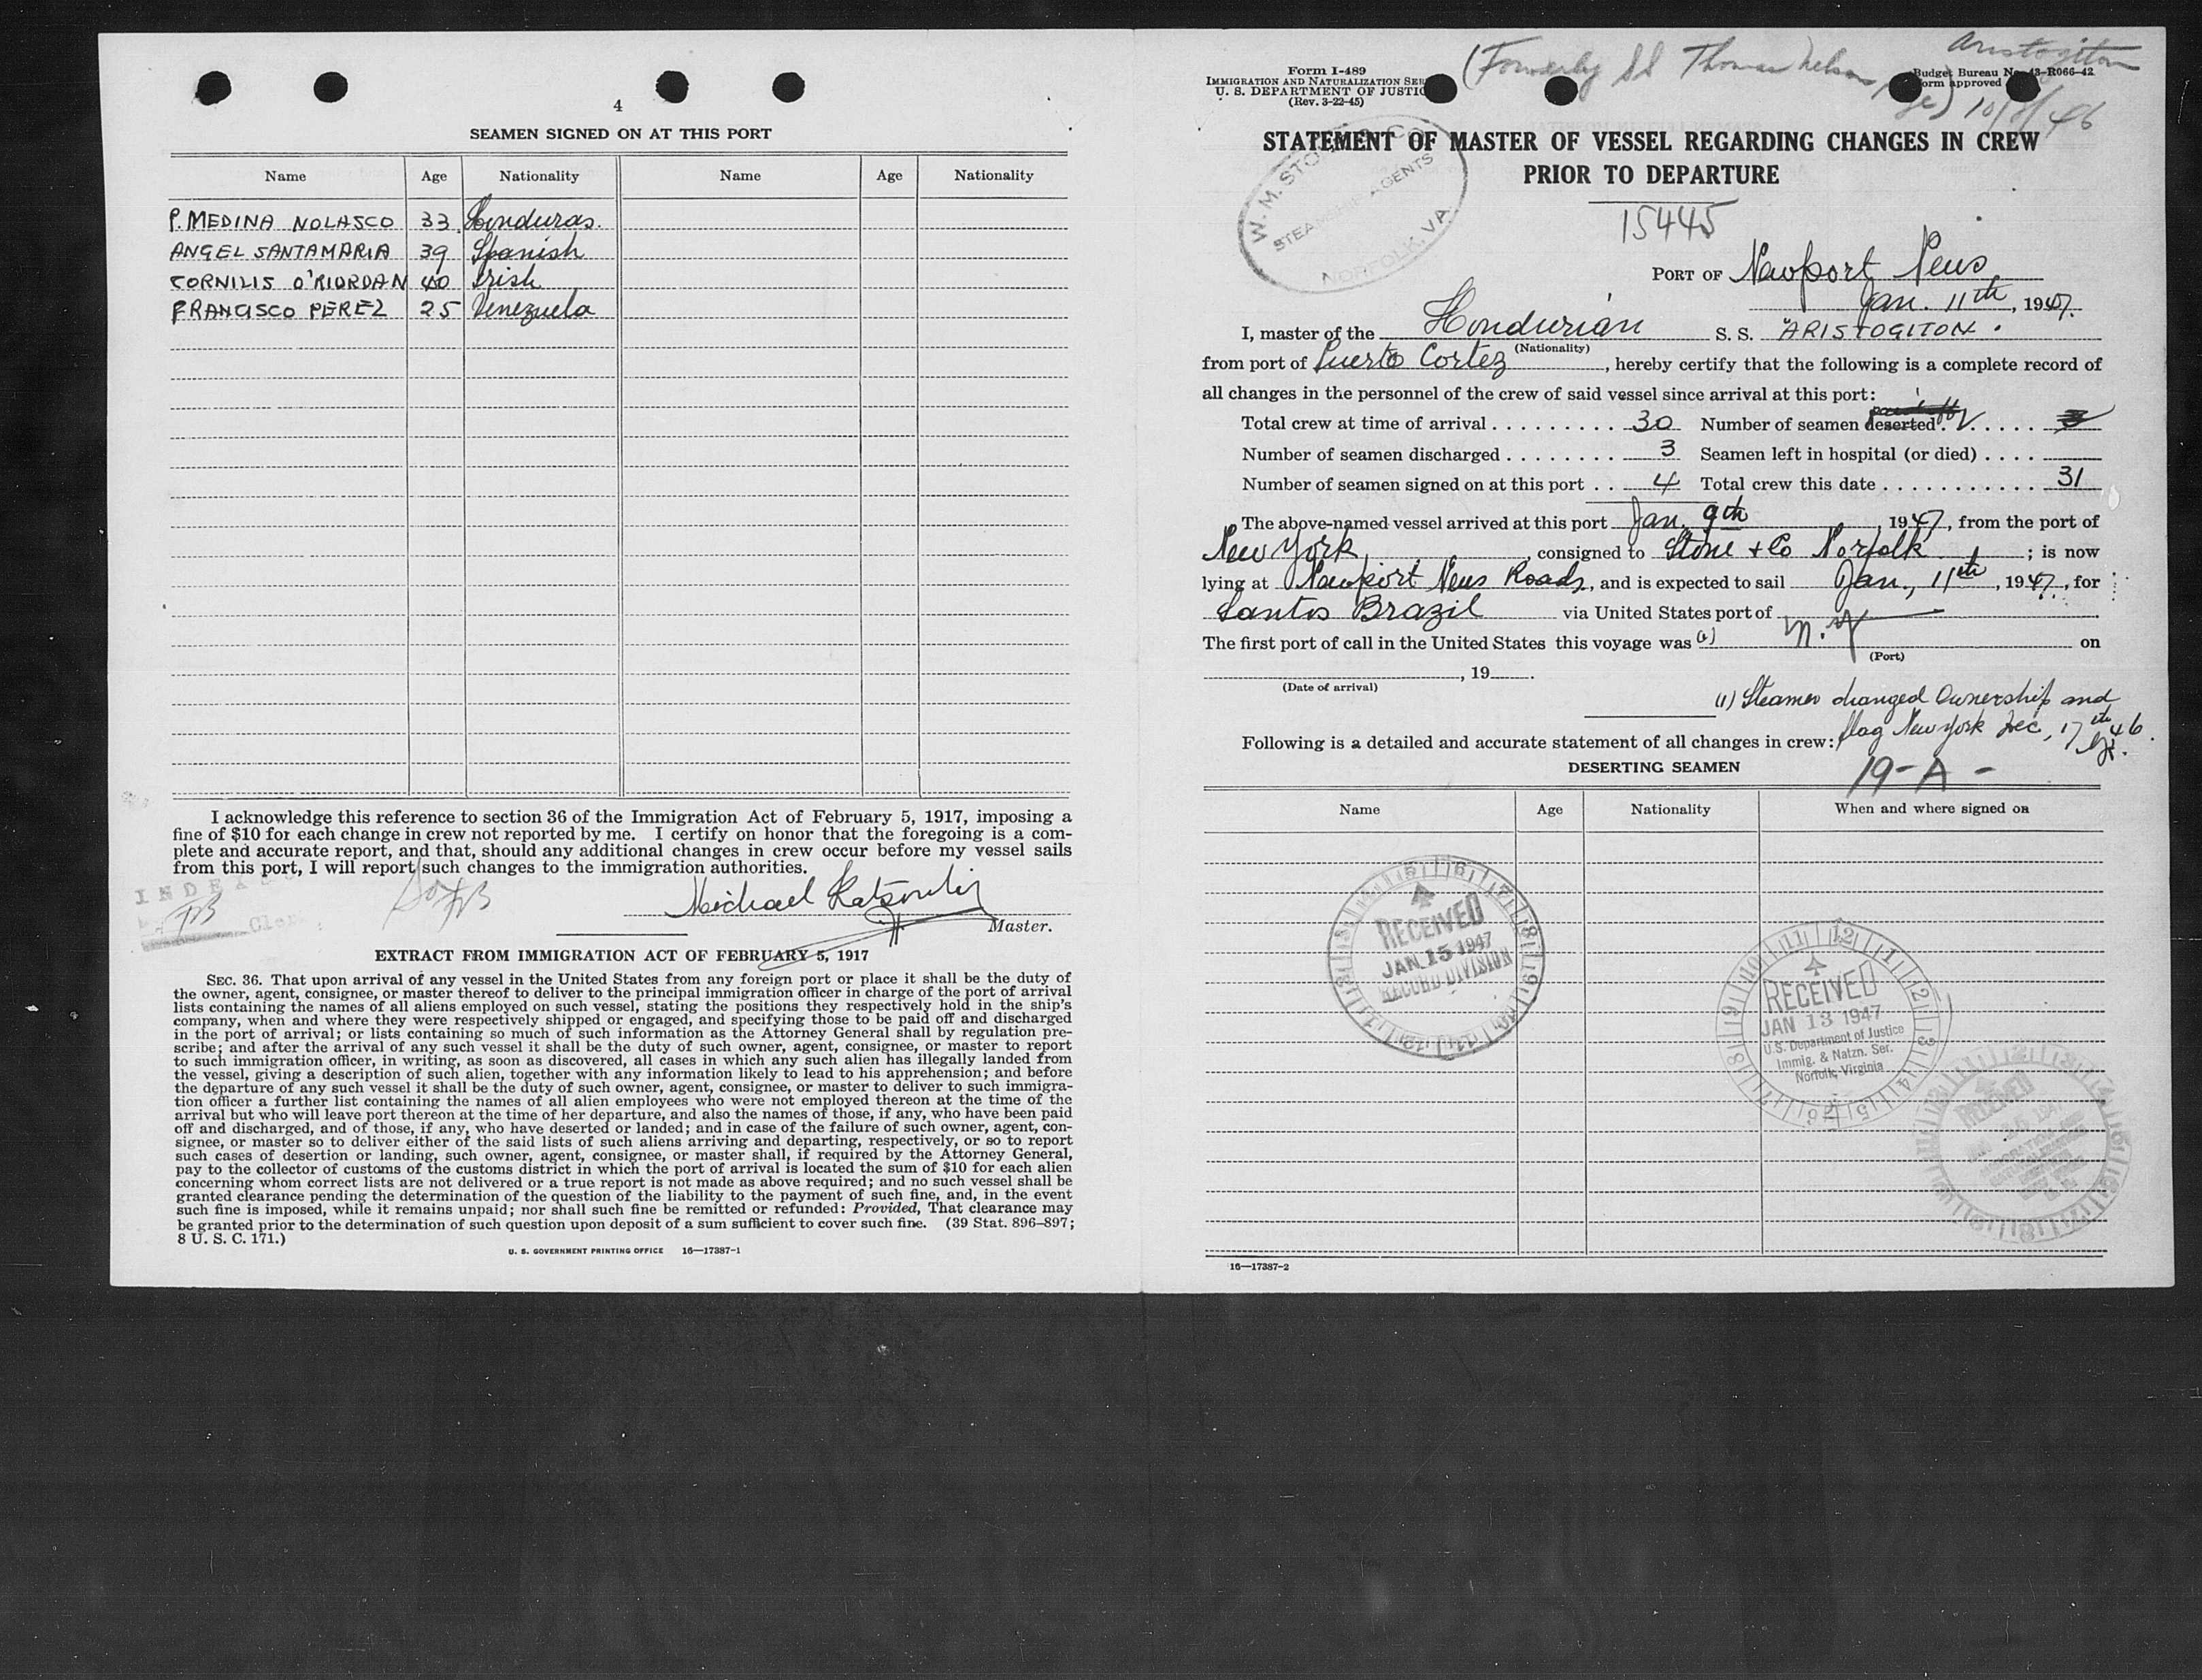 4
SEAMEN SIGNED ON AT THIS PORT
Name Age Nationality Name Age Nationality
P. MEDINA NOLASCO 33 Honduras.
ANGEL SANTAMARIA 39 Spanish
CORNILIS O'RIORDAN 40 Irish
FRANCISCO PEREZ 25 Venezuela
I acknowledge this reference to section 36 of the Immigration Act of February 5, 1917, imposing a
fine of $10 for each change in crew not reported by me. I certify on honor that the foregoing is a com-
plete and accurate report, and that, should any additional changes in crew occur before my vessel sails
from this port, I will report such changes to the immigration authorities.
Michael
Master.
EXTRACT FROM IMMIGRATION ACT OF FEBRUARY 5, 1917
SEC. 36. That upon arrival of any vessel in the United States from any foreign port or place it shall be the duty of
the owner, agent, consignee, or master thereof to deliver to the principal immigration officer in charge of the port of arrival
lists containing the names of all aliens employed on such vessel, stating the positions they respectively hold in the ship's
company, when and where they were respectively shipped or engaged, and specifying those to be paid off and discharged
in the port of arrival; or lists containing so much of such information as the Attorney General shall by regulation pre-
scribe; and after the arrival of any such vessel it shall be the duty of such owner, agent, consignee, or master to report
to such immigration officer, in writing, as soon as discovered, all cases in which any such alien has illegally landed from
the vessel, giving a description of such alien, together with any information likely to lead to his apprehension; and before
the departure of any such vessel it shall be the duty of such owner, agent, consignee, or master to deliver to such immigra-
tion officer a further list containing the names of all alien employees who were not employed thereon at the time of the
arrival but who will leave port thereon at the time of her departure, and also the names of those, if any, who have been paid
off and discharged, and of those, if any, who have deserted or landed; and in case of the failure of such owner, agent, con-
signee, or master so to deliver either of the said lists of such aliens arriving and departing, respectively, or so to report
such cases of desertion or landing, such owner, agent, consignee, or master shall, if required by the Attorney General,
pay to the collector of customs of the customs district in which the port of arrival is located the sum of $10 for each alien
concerning whom correct lists are not delivered or a true report is not made as above required; and no such vessel shall be
granted clearance pending the determination of the question of the liability to the payment of such fine, and, in the event
such fine is imposed, while it remains unpaid; nor shall such fine be remitted or refunded: Provided, That clearance may
be granted prior to the determination of such question upon deposit of a sum sufficient to cover such fine. (39 Stat. 896–897;
8 U. S. C. 171.)
U. S. GOVERNMENT PRINTING OFFICE 16—17387-1
Aristogiton
(Formerly SS Thomas Nelson
10/8/46
Form I-489
IMMIGRATION AND NATURALIZATION SER
U. S. DEPARTMENT OF JUSTIC
(Rev. 3-22-45)
Budget Bureau No. 43-R066-42
orm approved
STATEMENT OF MASTER OF VESSEL REGARDING CHANGES IN CREW
PRIOR TO DEPARTURE
W. M. STONE & CO
STEAMSHIP AGENTS
NORFOLK, VA.
15445
PORT OF Newport News
Jan. 11th, 1947.
I, master of the Hondurian S. S. "ARISTOGITON.
(Nationality)
from port of Puerto Cortez, hereby certify that the following is a complete record of
all changes in the personnel of the crew of said vessel since arrival at this port:
Total crew at time of arrival . . . . . . . . . . 30 Number of seamen deserted . . . . . 3
Number of seamen discharged . . . . . . . . 3 Seamen left in hospital (or died) . . . .
Number of seamen signed on at this port . . 4 Total crew this date . . . . . . . . . . . . 31
The above-named vessel arrived at this port Jan. 9th, 1947, from the port of
New York, consigned to Stone + Co Norfolk; is now
lying at Newport News Roads, and is expected to sail Jan., 11th, 1947, for
Santos Brazil via United States port of
The first port of call in the United States this voyage was (1) N.Y on
(Port)
, 19 .
(Date of arrival)
(1) Steamer changed Ownership and
flag New York Dec, 17th 46.
Following is a detailed and accurate statement of all changes in crew:
DESERTING SEAMEN
19-A-
Name Age Nationality When and where signed on
RECEIVED
JAN 15 1947
RECORD DIVISION
RECEIVED
JAN 13 1947
U.S. Department of Justice
Immig. & Natzn. Ser.
Norfolk, Virginia
RECEIVED
16—17387-2